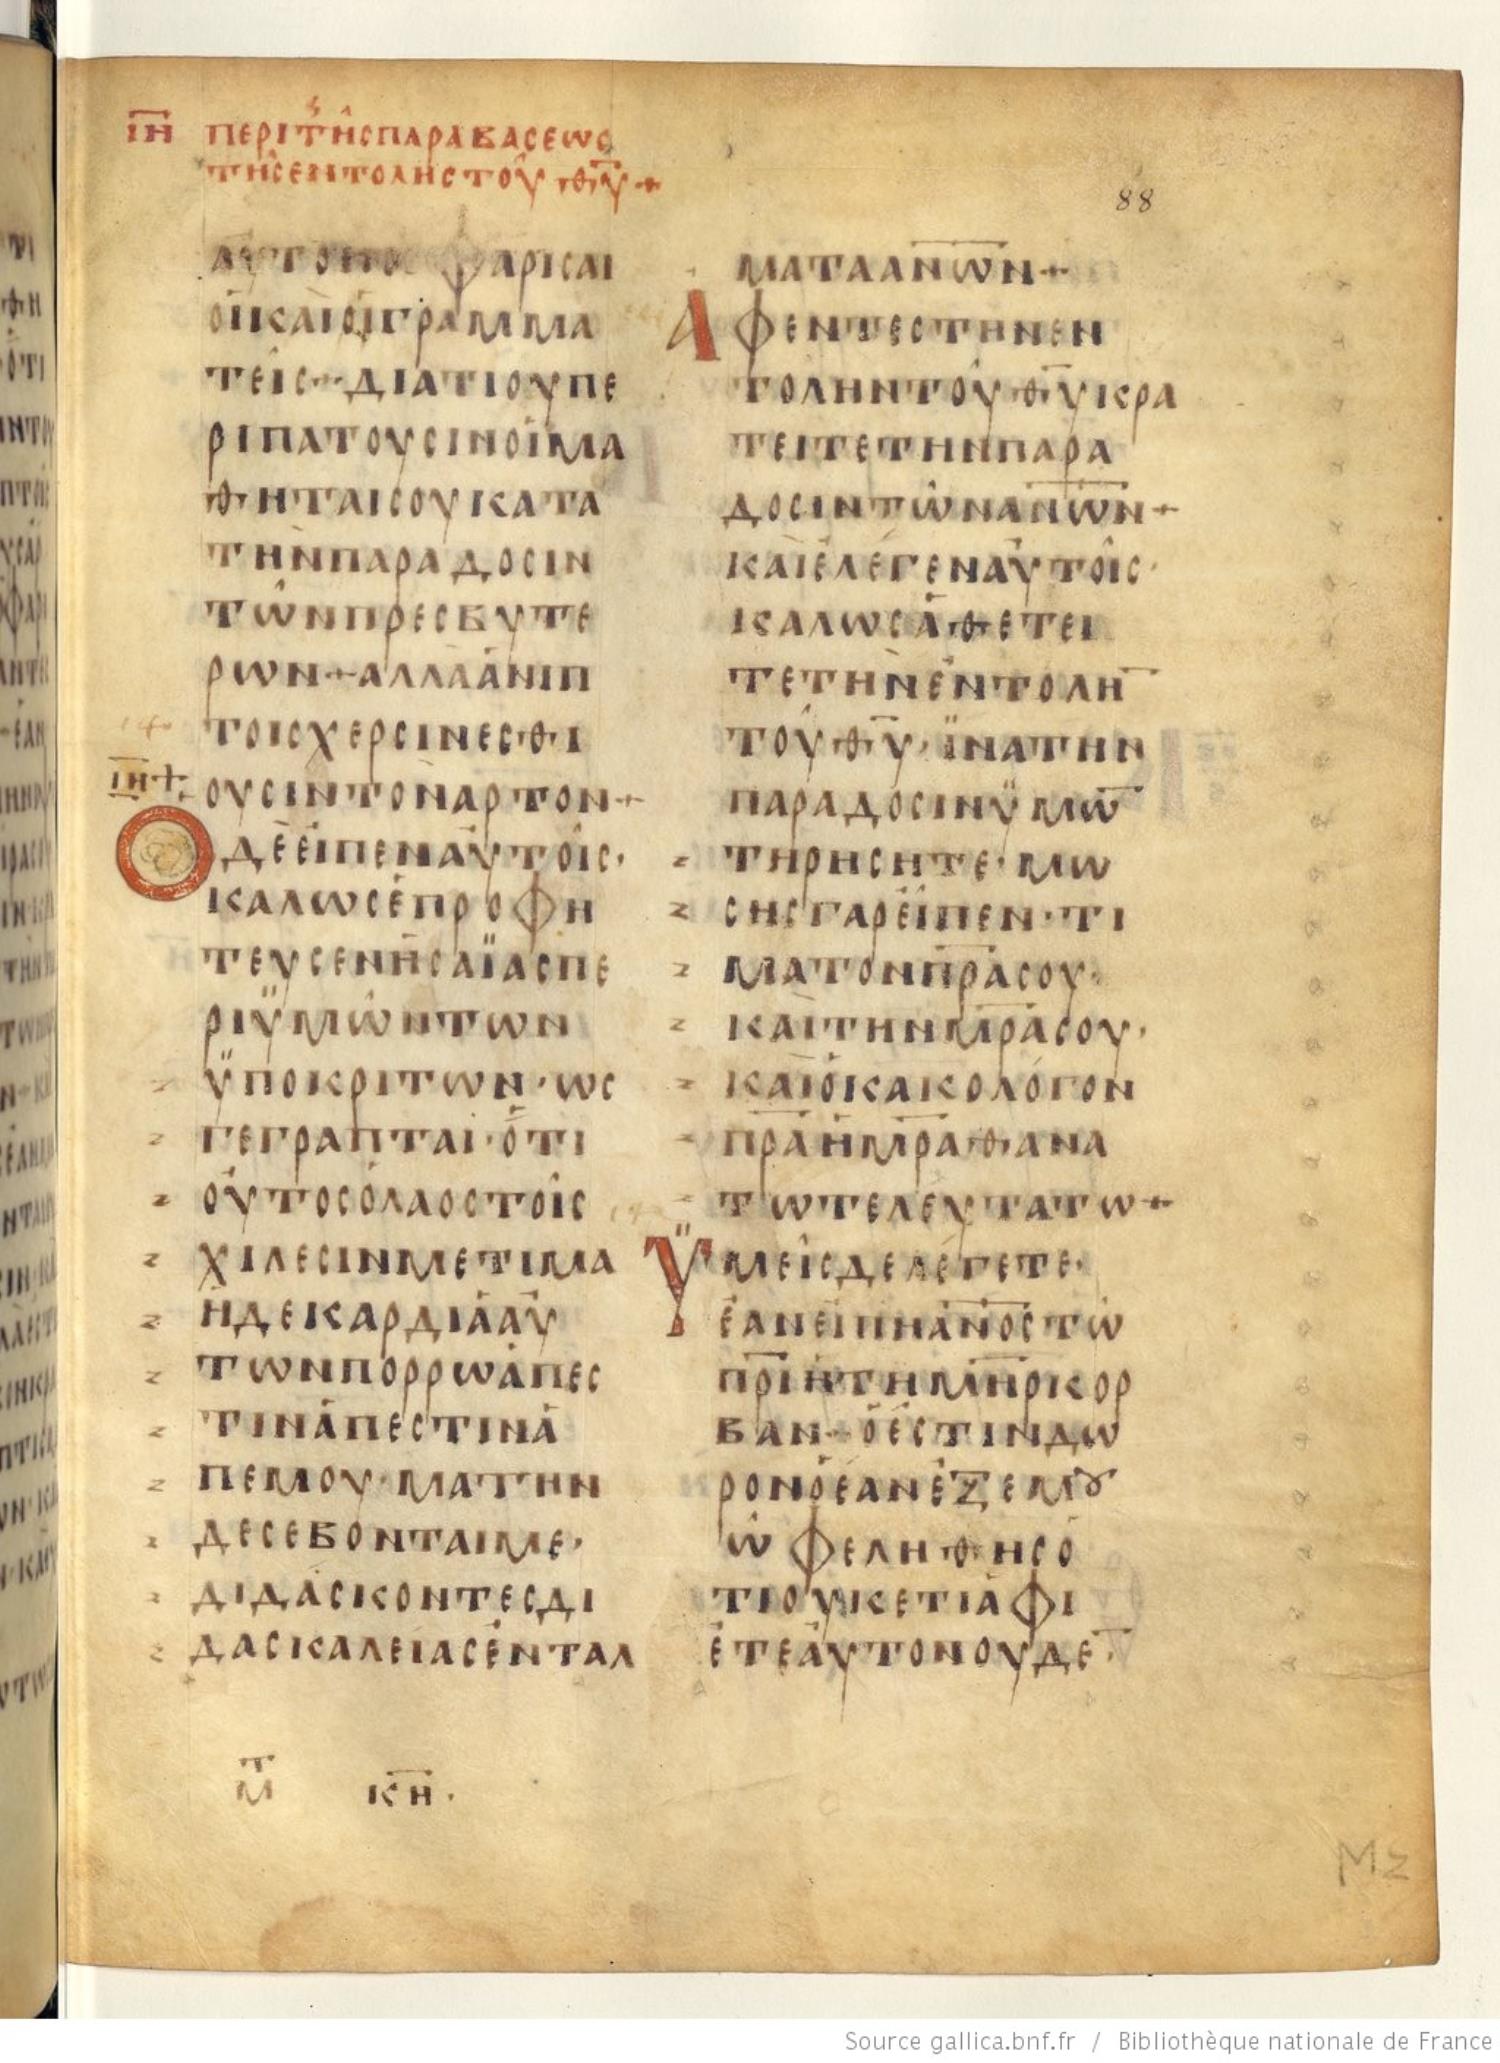 ῑη̄ περι της παραβασεως
της εντολης του θ̄ῡ +
88
αυτον οι φαρισαι
οι και οι γραμμα
τεις· διατι ου πε
ριπατουσιν οι μα
θηται σου κατα
την παραδοσιν
των πρεσβυτε
ρων + αλλα ανιπ
τοις χερσιν εσθι
ουσιν τον αρτον +
ῑη̄ +
Ο δε ειπεν αυτοις·
καλως επροφη
τευσεν ησαϊας πε
ρι ϋμων των
ϋποκριτων· ως
γεγραπται· οτι
ουτος ο λαος τοις
χιλεσιν με τιμα
η δε καρδια αυ
των πορρω απεσ
τιν απεστιν α
π εμου· ματην
δε σεβονται με·
διδασκοντες δι
δασκαλειας ενταλ
ματα ᾱν̄ω̄ν̄ +
Αφεντες την εν
τολην του θ̄ῡ κρα
τειτε την παρα
δοσιν των ᾱν̄ω̄ν̄ +
και ελεγεν αυτοις·
καλως αθετει
τε την εντολη̄
του θ̄ῡ· ϊνα την
παραδοσιν ϋμω̄
τηρησητε· μω
σης γαρ ειπεν· τι
μα τον π̄ρ̄ᾱ σου·
και την μ̄ρ̄ᾱ σου·
και ο κακολογον
π̄ρ̄ᾱ η μ̄ρ̄ᾱ θανα
τω τελευτατω +
Ϋμεις δε λεγετε·
εαν ειπη ᾱν̄ο̄ς̄ τω
π̄ρ̄ῑ η τη μ̄η̄ρ̄ῑ κορ
βαν + ο εστιν δω
ρον ο εαν εξ εμȣ
ωφεληθης ο
τι ουκετι αφι
ετε αυτον ουδε̄·
κ̄η̄·
ΜΖ
Source gallica.bnf.fr / Bibliothèque nationale de France